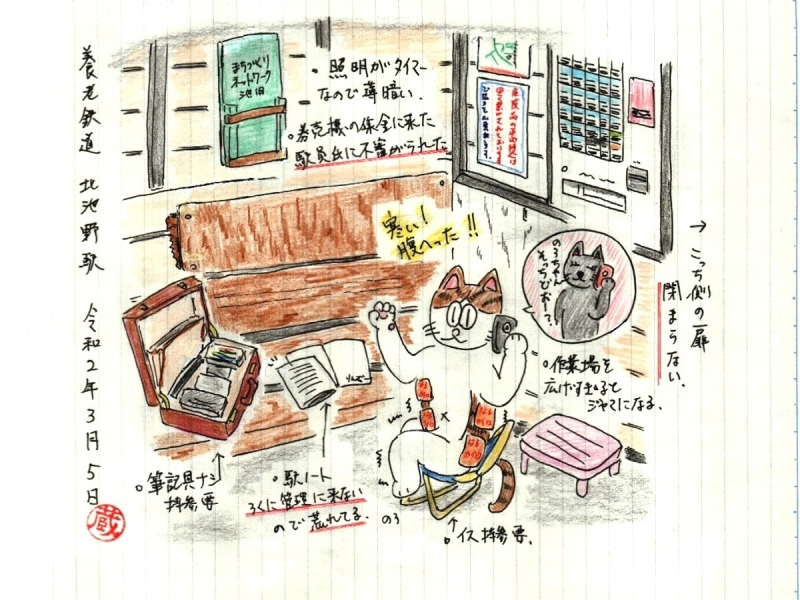 養老鉄道 北池野駅 令和2年3月5日
蔵
まちづくり
ネットワーク
池田
・照明がタイマー
なので薄暗い.
○券売機の保全に来た
駅員氏に不審がられた
寒い!
腹へった!!
のろちゃん
そっちどおー?
→こっち側の扉
閉まらない.
○作業場を
広げすぎると
ジャマになる.
はる
カイロ
はる
カイロ
○筆記具ナシ
持参要
○駅ノート
ろくに管理に来ない
ので荒れてる.
のろ
○イス持参要.